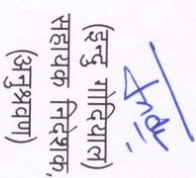 Indu
(इन्दु गोदियाल)
सहायक निदेशक,
(अनुश्रवण)